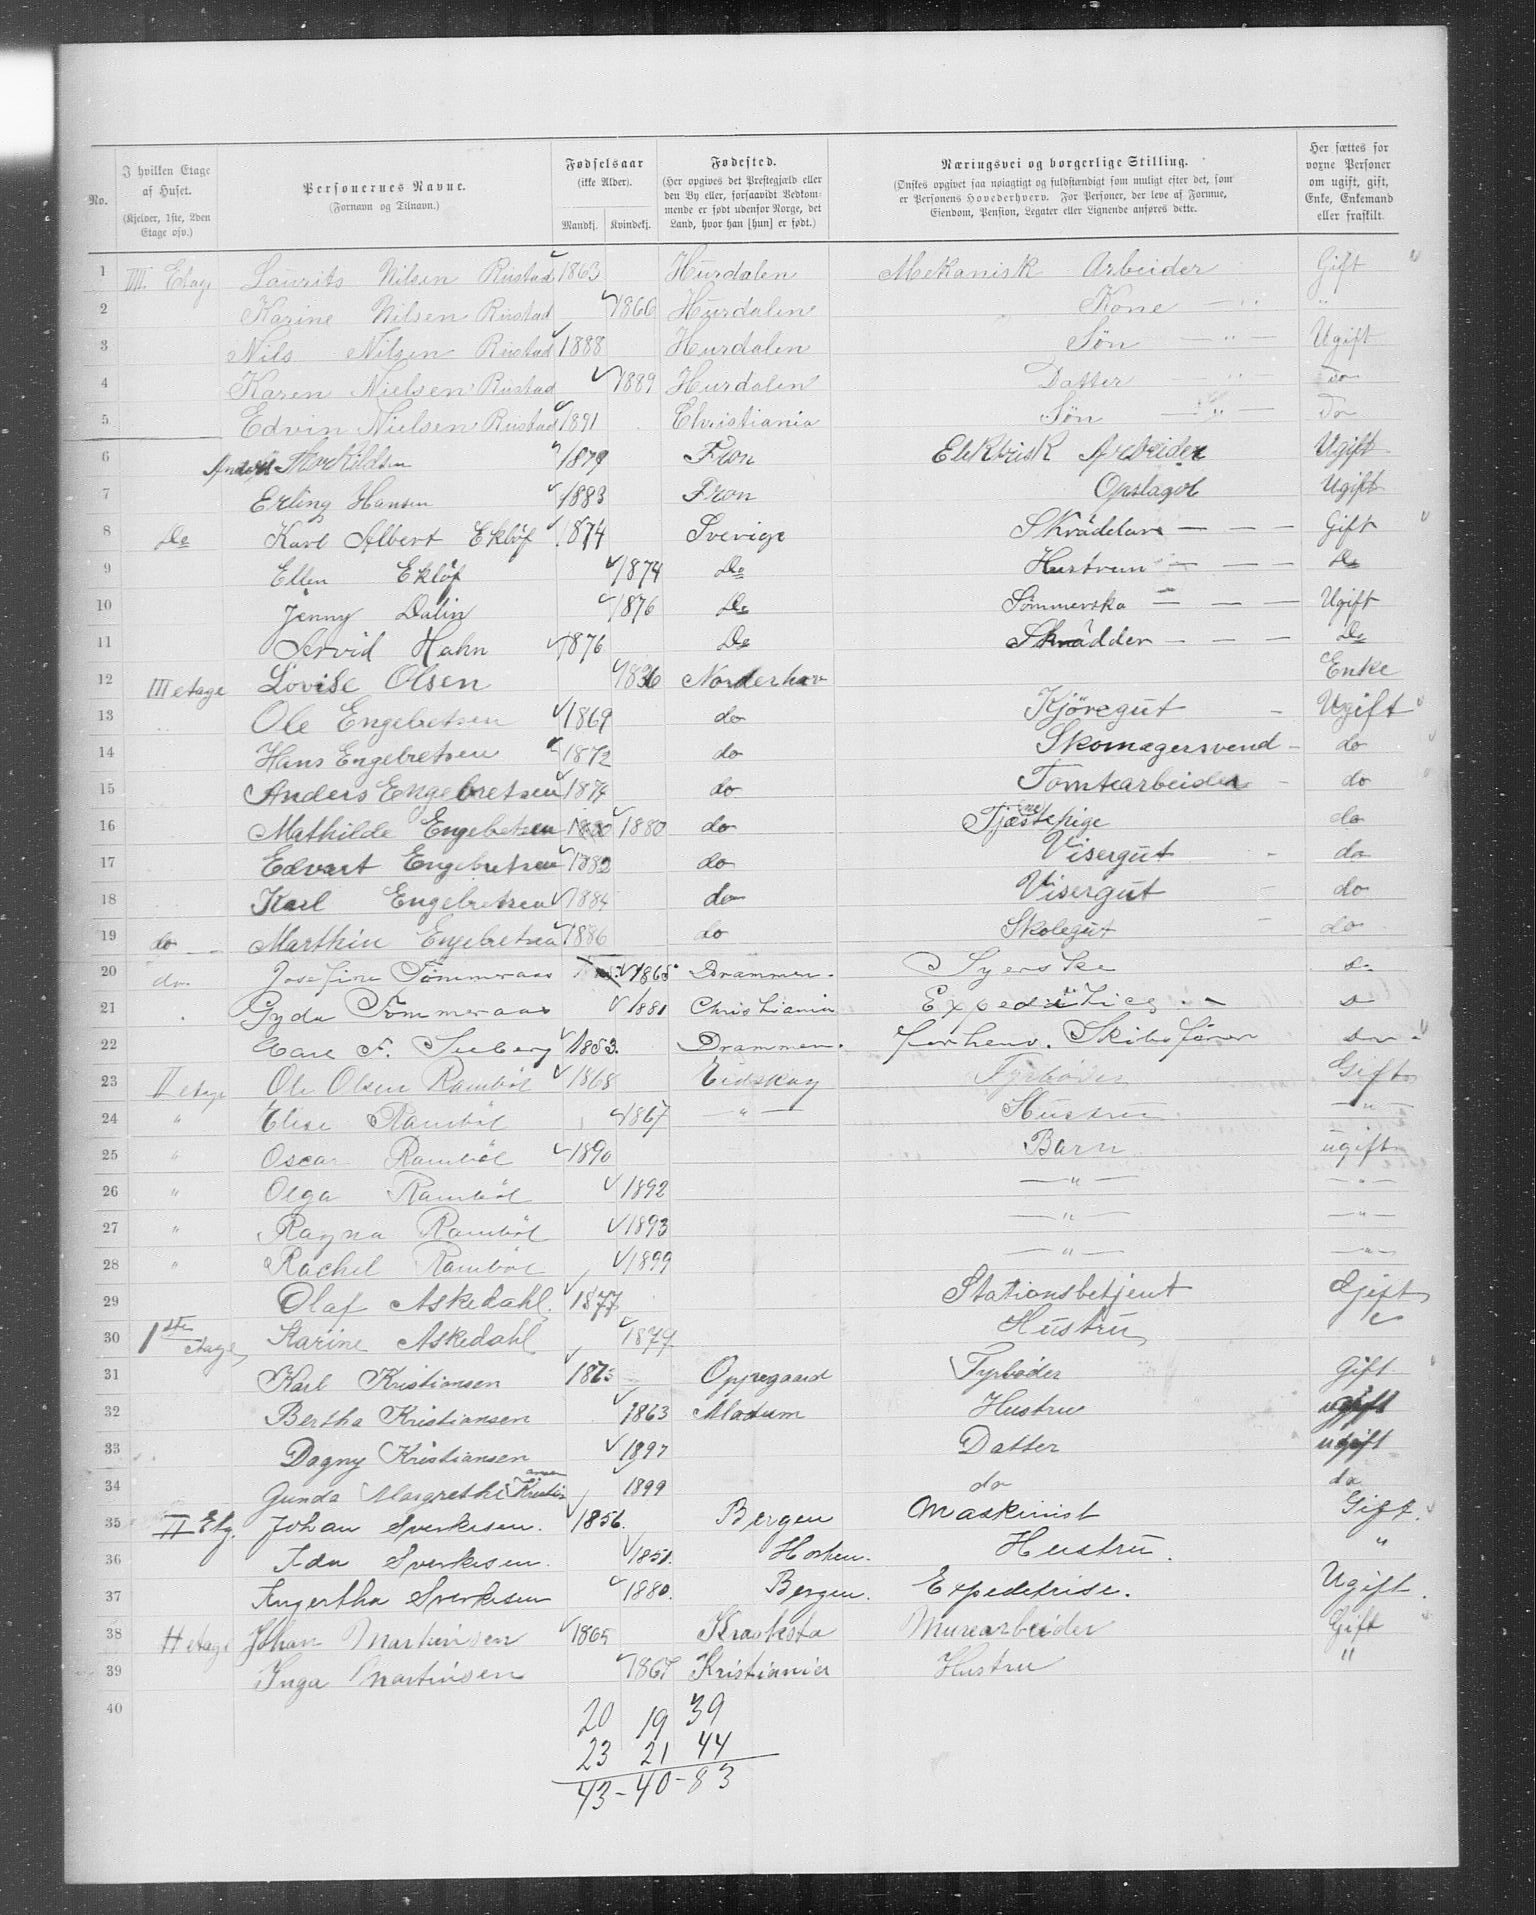 No. | I hvilken Etage af Huset. (Kjelder, 1ste, 2den Etage osv.) | Personernes Navne. (Fornavn og Tilnavn.) | Fødselsaar (ikke Alder). Mandkj. Kvindekj. | Fødested. (Her opgives det Prestegjæld eller den By eller, forsaavidt Vedkommende er født udenfor Norge, det Land, hvor han [hun] er født.) | Næringsvei og borgerlige Stilling. (Ønskes opgivet saa nøiagtigt og fuldstændigt som muligt efter det, som er Personens Hovederhverv. For Personer, der leve af Formue, Eiendom, Pension, Legater eller Lignende anføres dette. | Her sættes for voxne Personer om ugift, gift, Enke, Enkemand eller fraskilt.
1 IIII Etage Laurits Nilsen Rustad 1863 Hurdalen Mekanisk Arbeider Gift
2 Karine Nilsen Rustad 1866 Hurdalen Kone — " "
3 Nils Nilsen Rustad 1888 Hurdalen Søn — " — Ugift
4 Karen Nielsen Rustad 1889 Hurdalen Datter — " — Do
5 Edvin Nielsen Rustad 1891 Christiania Søn — " — Do
6 Anders Thorkildsen 1879 Fron Elektrisk Arbeider Ugift
7 Erling Hansen 1883 Fron Ugift
8 Do Karl Albert Eklöf 1874 Sverige Skräddare — — — Gift
9 Ellen Eklöf 1874 Do Hustrun — — — Do
10 Jenny Dalin 1876 Do Sömmerska — — — Ugift
11 Arvid Hahn 1876 Do Skrädder — — — Do
12 III etage Lovise Olsen 1836 Norderhov Enke
13 Ole Engebretsen 1869 do Kjöregut - Ugift
14 Hans Engebretsen 1872 do Skomagersvend - do
15 Anders Engebretsen 1874 do Tomtearbeider - do
16 Mathilde Engebetsen 1880 1880 do Tjenestepige do
17 Edvart Engebretsen 1882 do Visergut - do
18 Karl Engebretsen 1884 do Visergut - do
19 do Marthin Engebretsen 1886 do Skolegut - do
20 do. Josefine Tømmeraas 1865 Drammen. Syerske
21 Gyda Tømmeraas 1881 Christiania
22 Carl F. Seeberg 1853. Drammen. forhenv. Skibsfører
23 II etage Ole Olsen Rambøl 1868 Eidskog Fyrbøder Gift
24 " Elise Rambøl 1867 — " — Hustru — " —
25 " Oscar Rambøl 1890 Barn ugift
26 " Olga Rambøl 1892 — " — — " —
27 " Ragna Rambøl 1893 — " — — " —
28 " Rachel Rambøl 1899 — " — — " —
29 Olaf Askedahl. 1877 Stationsbetjent Gjift
30 1ste etage Karine Askedahl 1879 Hustru "
31 Karl Kristiansen Oppegaard Fyrbøder Gift
32 Bertha Kristiansen 1863 Modum Hustru ugift
33 Dagny Kristiansen 1897 Datter ugift
34 Gunda Margrethe Kristiansen 1899 do do
35 II Etg. Johan Sverkesen. 1856. Bergen Maskinist Gift.
36 Ida Sverkesen. 1851. Horten. Hustru. "
37 Ingertha Sverkesen 1880. Bergen. Expeditrise. Ugift.
38 II etage Johan Martinsen 1865 Kraaksta Murearbeider Gift
39 Inga Martinsen 1867 Kristiania Hustru "
40
20 19 39
23 21 44
43 - 40 - 83